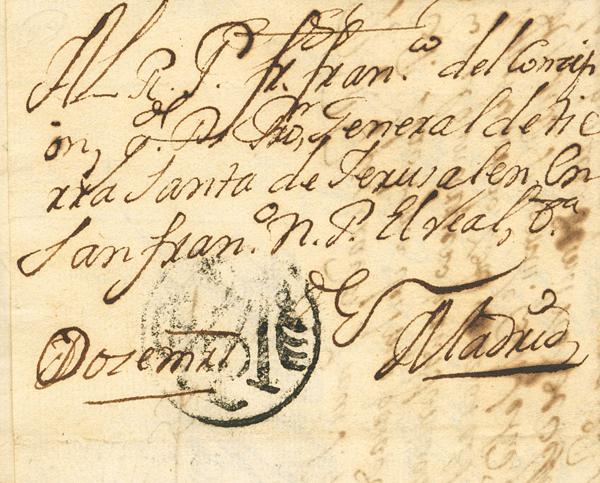 Al R. P. fr. fran.co del Concip
on, g.de P.r Pror, General de tie
rra Santa de Jerusalen, En
San fran.o N. P. El real,
Dozemill Madrid